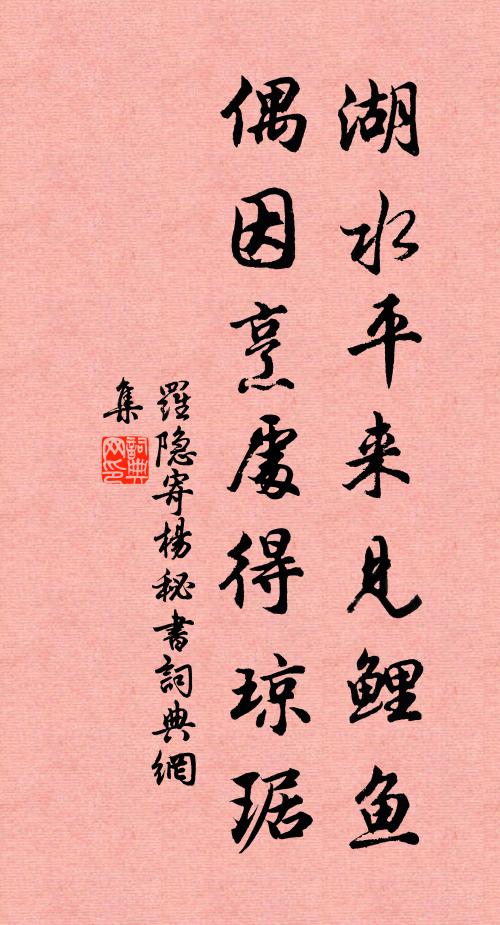 湖水平来见鲤鱼
偶因烹處得琼琚
羅隐寄楊秘書詞典網
集
詞典网印